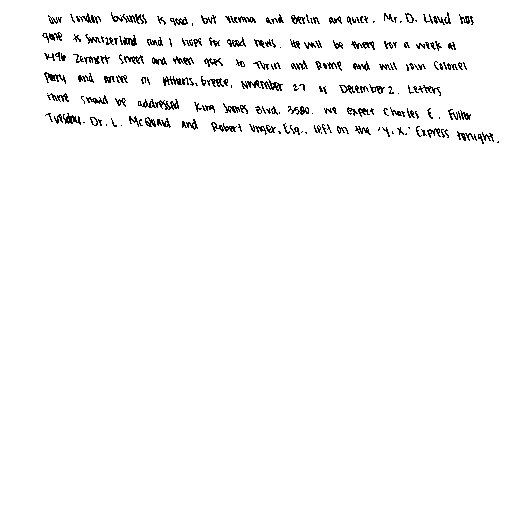 Our London business is good, but Vienna and Berlin are quiet. Mr. D. Lloyd has
gone to Switzerland and I hope for good news. He will be there for a week at
1496 Zermott Street and then goes to Turin and Rome and will join Colonel
Parry and arrive at Athens, Greece, November 27 or December 2. Letters
there should be addressed King James Blvd. 3580. We expect Charles E. Fuller
Tuesday. Dr. L. McQuaid and Robert Unger, Esq., left on the "Y.X." Express tonight.